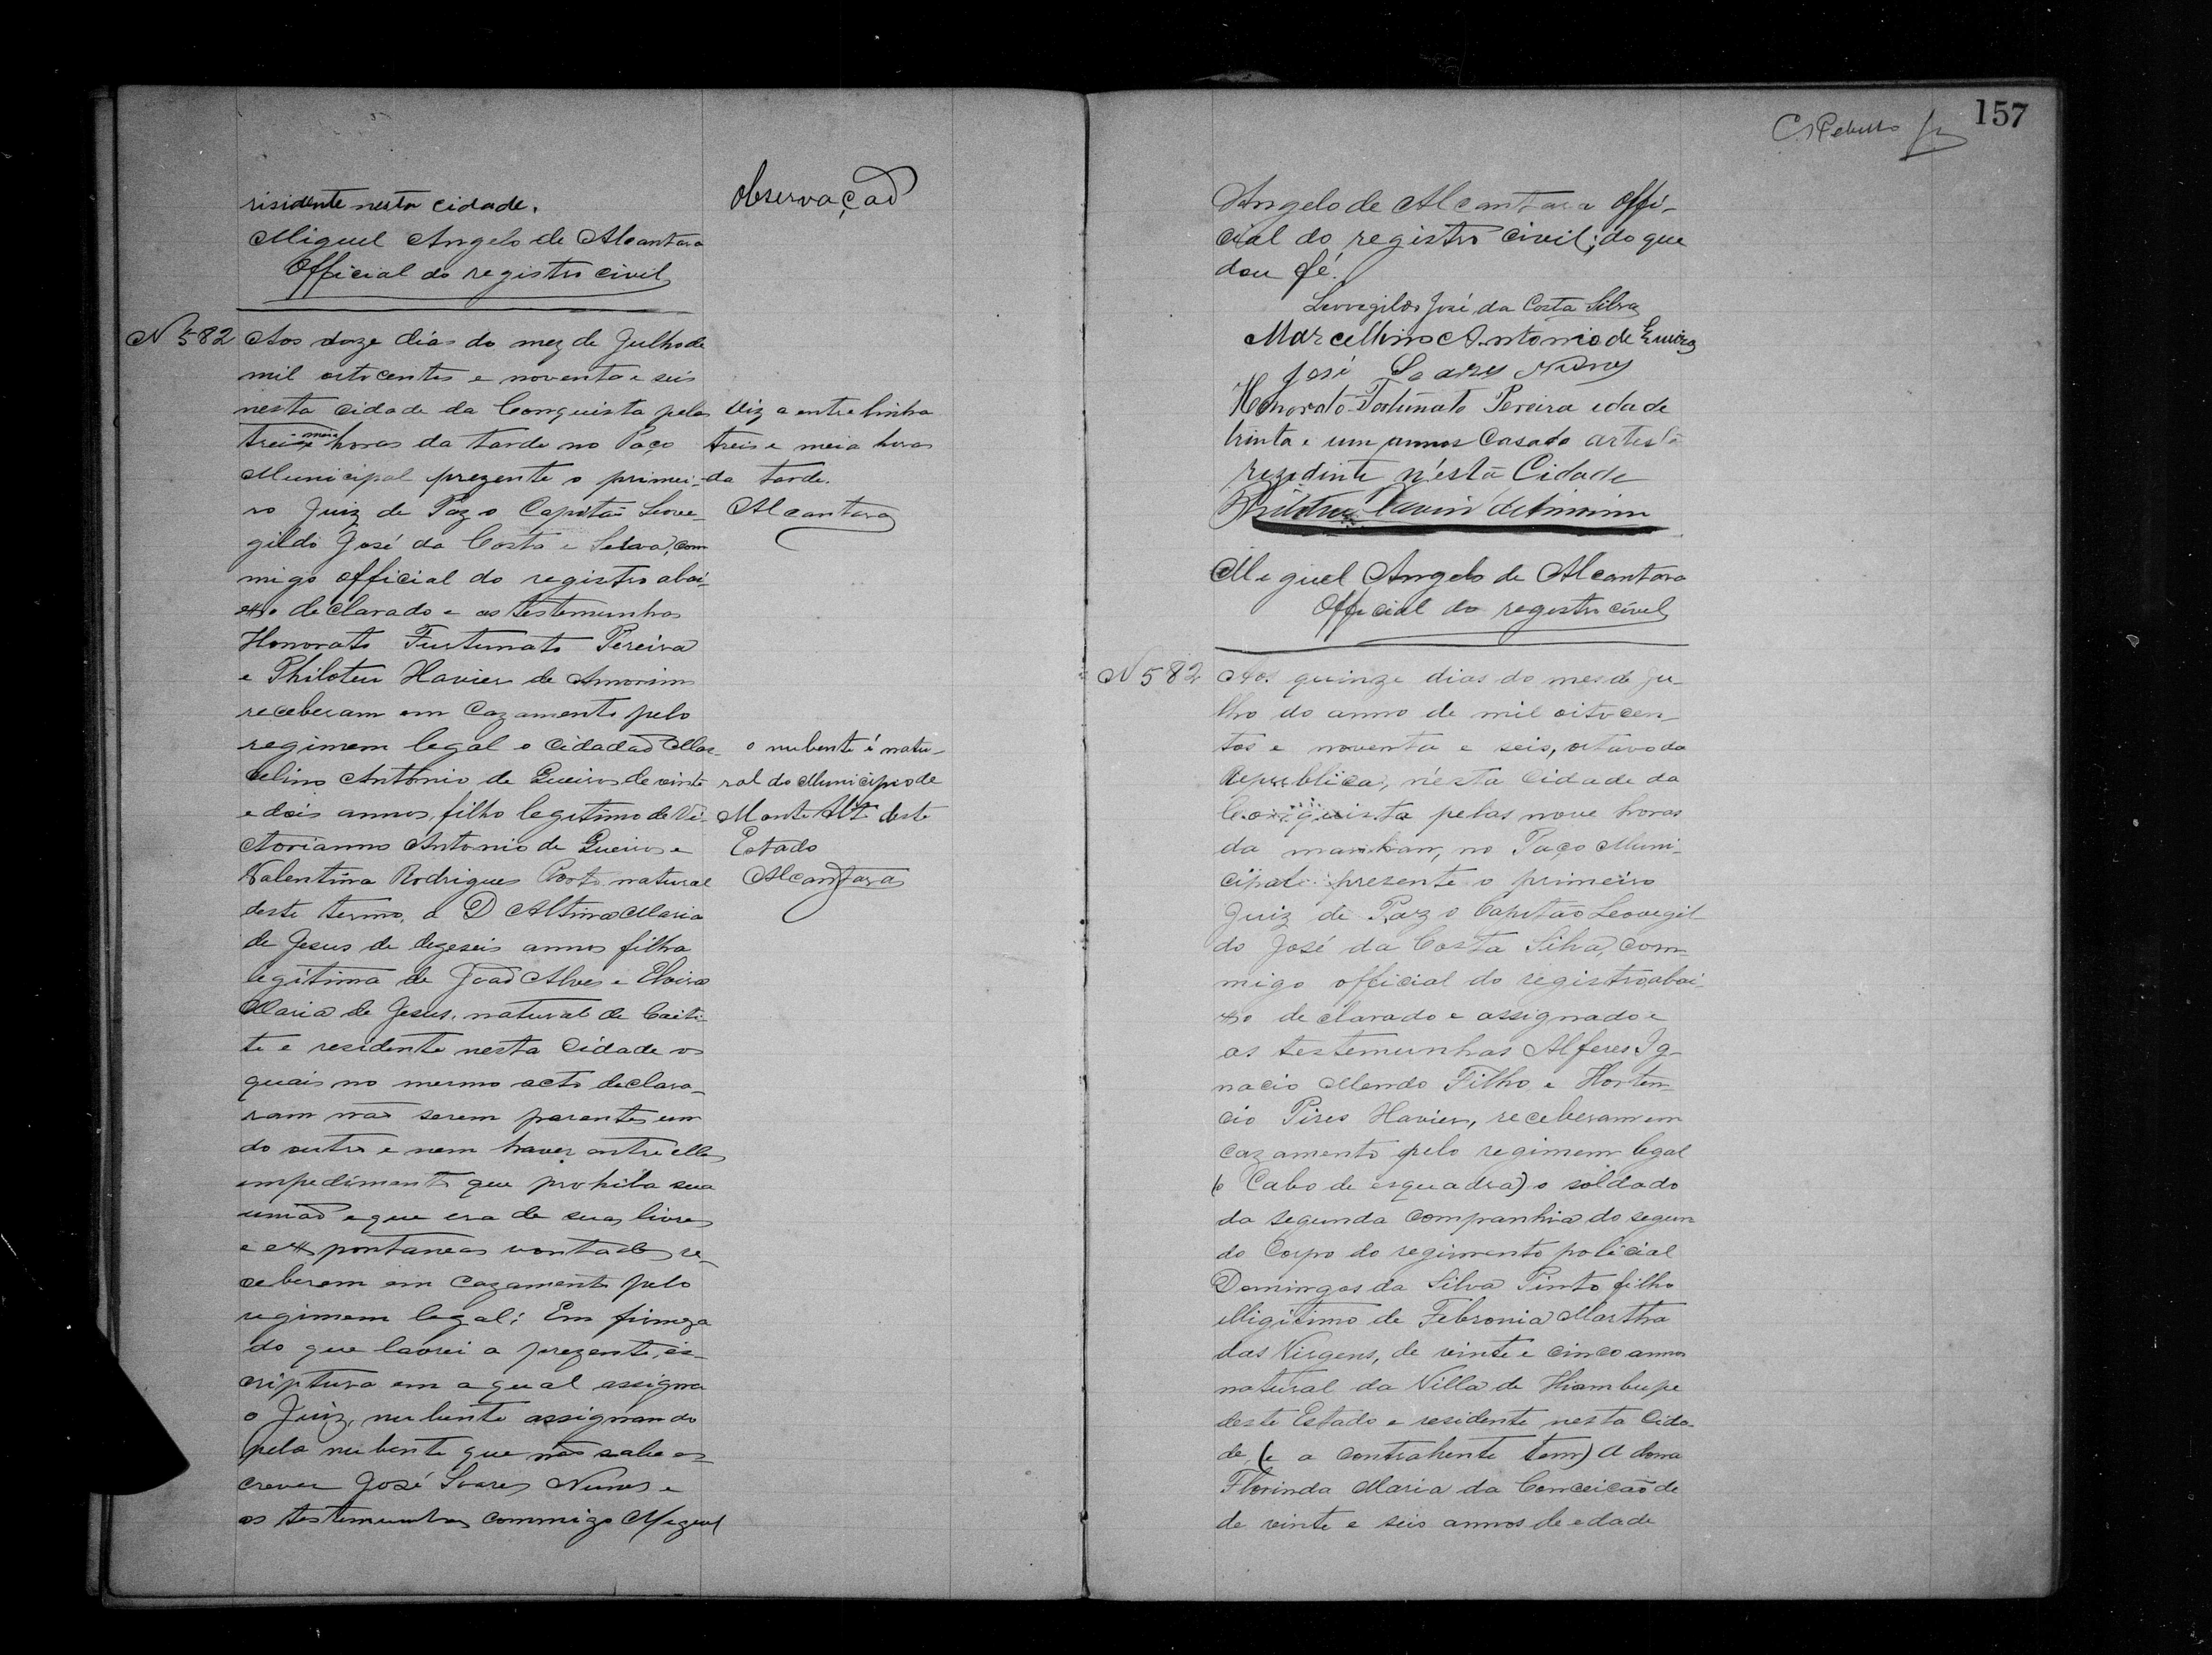 risidente nesta cidade.
Miguel Angelo de Alcantara
Official do registro civil
Observação
N 582
Aos doze dias do mez de Julho de
mil oitocentos e noventa e seis
nesta cidade da Conquista pelas
treis e meia horas da tarde no Paço
Municipal prezente o primei-
ro Juiz de Paz o Capitão Leove-
gildo José da Costa e Selva, com
migo official do registro abai-
xo declarado e as testemunhas
Honorato Furtunato Pereira
e Philoteu Havier de Amorim
receberam em Cazamento pelo
regimem legal o Cidadão Mar-
celino Antonio de Queiros de vinte
e dois annos, filho legitimo de Vi-
ctorianno Antonio de Queiros e
Valentina Rodrigues Costa natural
deste termo, a D Altina Maria
de Jesus de dezeseis annos filha
legitima de João Alves e Elvira
Maria de Jesus, natural de Caiti-
te e residente nesta Cidade os
quais no mesmo acto declara-
ram não serem parentes um
do outro e nem haver entre elles
empedimento que prohiba sua
união e que era de suas livres
e expontaneas vontades re-
ceberem em Cazamento pelo
regimem legal; Em firmeza
do que lavrei a prezente, es-
criptura em a qual assigna
o Juiz, nubente assignando
pela nubente que não sabe es-
crever José Soares Nunes e
as testemunhas commigo Miguel
Diz a entre linha
treis e meia horas
da tarde.
Alcantara
o nubente é natu-
ral do Municipio de
Monte Alto deste
Estado
Alcantara
157
Angelo de Alcantara Offi-
cial do registro civil; do que
dou fé.
Leovegildo José da Costa Silva
Marcellino Antonio de Queiros
José Soares Nunes
Honorato Fortunato Pereira edade
trinta e um annos Casado artista
rezedinte n'esta Cidade
Miguel Angelo de Alcantara
Official do registro civel
N 582
Aos quinze dias do mes de Ju-
lho do anno de mil oitocen-
tos e noventa e seis, oitavo da
Republica, n'esta Cidade da
Conquista pelas nove horas
da manhan, no Paço Muni-
cipal presente o primeiro
Juiz de Paz o Capitão Leovegil
do José da Costa Silva, com-
migo official do registro abai-
xo declarado e assignado e
as testemunhas Alferes Ig-
nacio Mendo Filho e Horten-
cio Pires Havier, receberam em
Cazamento pelo regimem legal
(o Cabo de esquadra) o soldado
da segunda Companhia do segun-
do Corpo do regimento policial
Domingos da Silva Pinto filho
illigitimo de Febronia Martha
das Virgens, de vinte e cinco annos
natural da Villa de Hiambupe
deste Estado e residente nesta Cida-
de, (e a contrahente tem) a dona
Florinda Maria da Conceicão de
de vinte e seis annos de edade